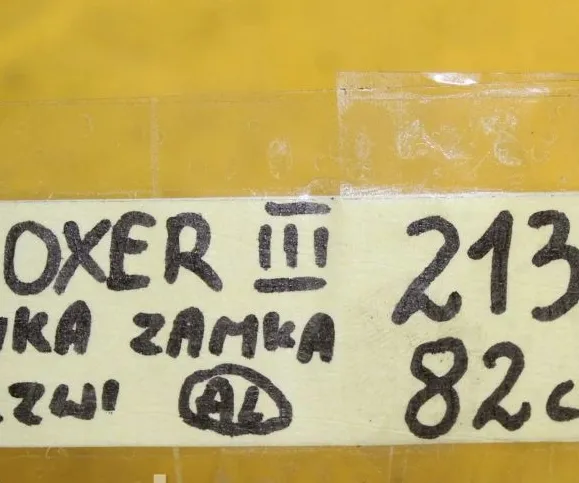 OXER III 213
KA ZAMKA
ZWI AL 82c